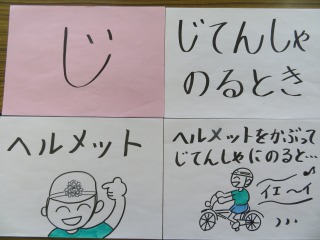 じ
じてんしゃ
のるとき
ヘルメット
ヘルメットをかぶって
じてんしゃにのると…
イェ〜イ♪